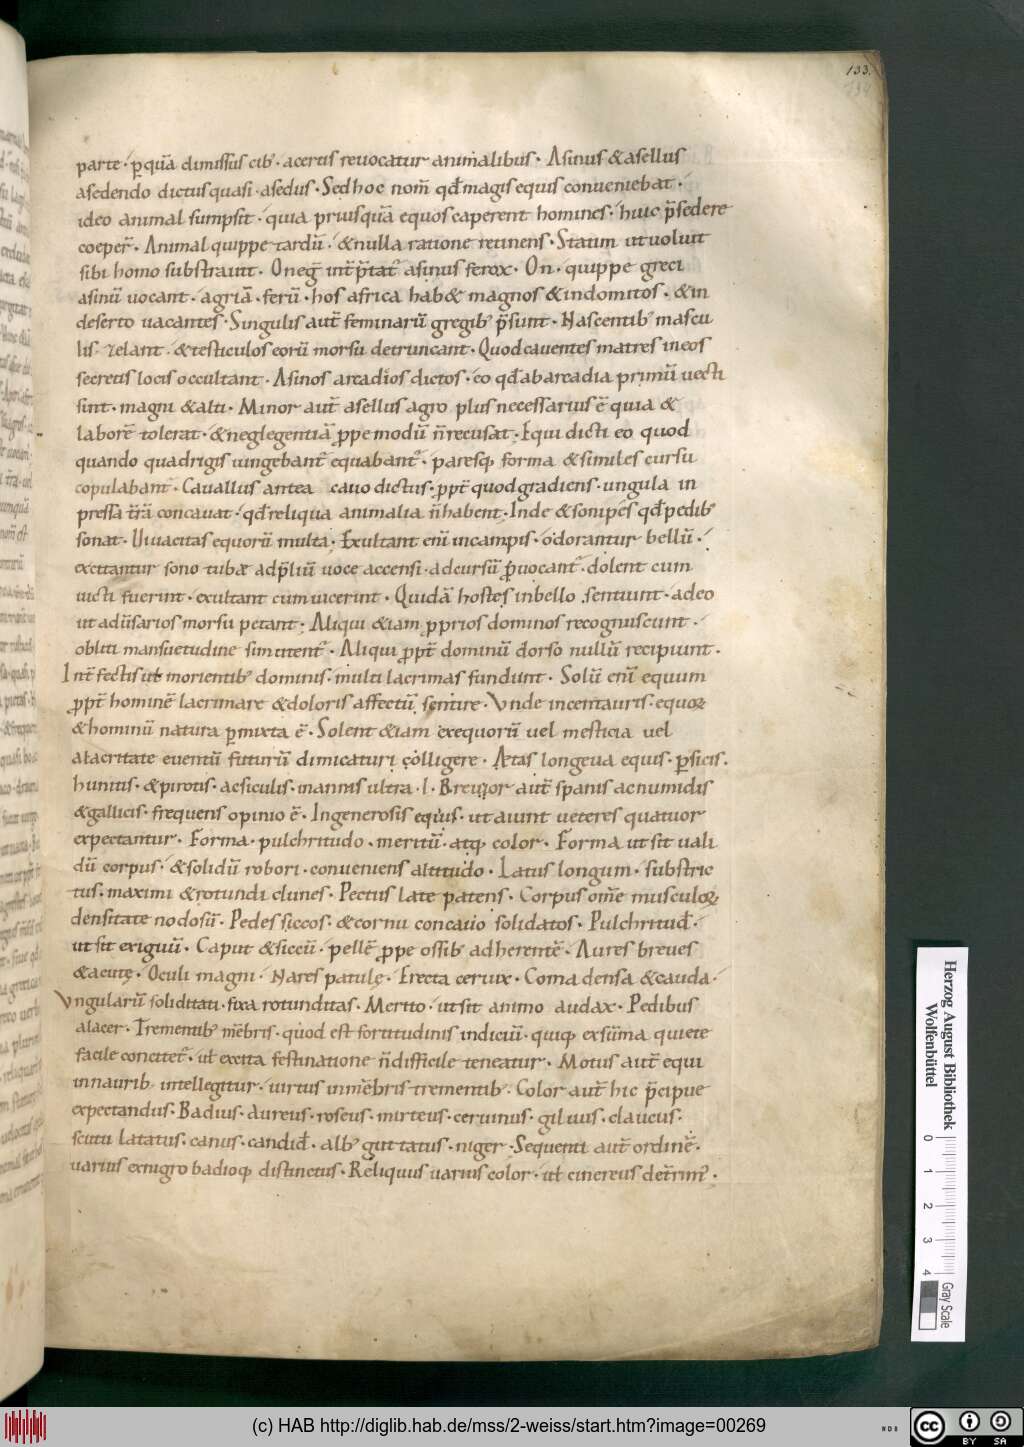 133.
parte · p̱ quā dimissus cib᷒ · a certis reuocatur animalibus · Asinus & asellus
a sedendo dictus quasi · asedus · Sed hoc nom̄ qđ magis equis conueniebat ·
ideo animal sumpsit · quia priusquā equos caperent homines · huic p̄sedere
coeper̄ · Animal quippe tardū · & nulla ratione retinens · Statim ut uoluit
sibi homo substrauit · Oneg̅ int̄p̄tat᷒ asinus ferox · On · quippe greci
asinū uocant · agriā · ferū · hos africa hab& magnos & indomitos · & in
deserto uacantes · Singulis aut̄ feminarū gregib᷒ p̄sunt · Nascentib᷒ mascu
lis zelant · & testiculos eorū morsu detruncant · Quod cauentes matres in eos
secretis locis occultant · Asinos arcadios dictos · eo qđ ab arcadia primū uecti
sint · magni & alti · Minor aut̄ asellus agro plus necessarius ē quia &
laborē tolerat · & neglegentiā ꝓpe modū n̄ recusat · Equi dicti eo quod
quando quadrigis iungebant᷒ equabant᷒ · pares q; forma & similes cursu
copulabant᷒ · Cauallus antea cauo dictus · ꝓpt̄ quod gradiens · ungula in
pressa t̄rā concauat · qđ reliqua animalia n̄ habent · Inde & sonipes qđ pedib᷒
sonat · Uiuacitas equorū multa · Exultant enī in campis · odorantur bellū ·
excitantur sono tubæ ad p̄liū uoce accensi · ad cursū ꝓuocant᷒ · dolent cum
uicti fuerint · exultant cum uicerint · Quidā hostes in bello sentiunt · adeo
ut aduīsarios morsu petant · Aliqui &iam ꝓprios dominos recognuscunt ·
obliti mansuetudine si mutent᷒ · Aliqui ꝓpt̄ dominū dorso nullū recipiunt ·
Int̄fectis ul̄ morientib᷒ dominis · multi lacrimas fundunt · Solū enī equum
ꝓpt̄ hominē lacrimare & doloris affectū sentire · Vnde in centauris · equoꝝ
& hominū natura p̱mixta ē · Solent &iam ex equorū uel mesticia uel
alacritate euentū futurū dimicaturi colligere · Ætas longeua equis · p̱sicis ·
hunitis · & pirotis · ac siculis · in annis ultra · l · Breuior aut̄ spanis ac numidis
& gallicis · frequens opinio ē · In generosis equis · ut aiunt ueteres quatuor
expectantur · Forma · pulchritudo · meritū · atq; color · Forma ut sit uali
dū corpus · & solidū robori · conueniens altitudo · Latus longum · substric
tus · maximi & rotundi clunes · Pectus late patens · Corpus om̄e musculoꝝ
densitate nodosū · Pedes siccos · & cornu concauo solidatos · Pulchritud̄ ·
ut sit exiguū · Caput & siccū · pellē ꝓpe ossib᷒ adherentē · Aures breues
& acutę · Oculi magni · Nares patulę · Erecta ceruix · Coma densa & cauda ·
Vngularū soliditati · fixa rotunditas · Merito · ut sit animo audax · Pedibus
alacer · Trementib᷒ mēbris · quod est fortitudinis indiciū · quiq; ex sūma quiete
facile concitet᷒ · ul̄ excita festinatione n̄ difficile teneatur · Motus aut̄ equi
in naurib᷒ intellegitur · uirtus in mēbris trementib᷒ · Color aut̄ hic p̄cipue
expectandus · Badius · aureus · roseus · mirteus · ceruinus · giluus · claucus ·
scutu latatus · canus · candid᷒ · alb᷒ guttatus · niger · Sequenti aut̄ ordinē ·
uarius ex nigro badioq; distinctus · Reliquus uarius color · ul̄ cinereus det̄rim᷒ ·
Herzog August Bibliothek
Wolfenbüttel
0 1 2 3 4
Gray Scale
(c) HAB http://diglib.hab.de/mss/2-weiss/start.htm?image=00269
cc BY SA